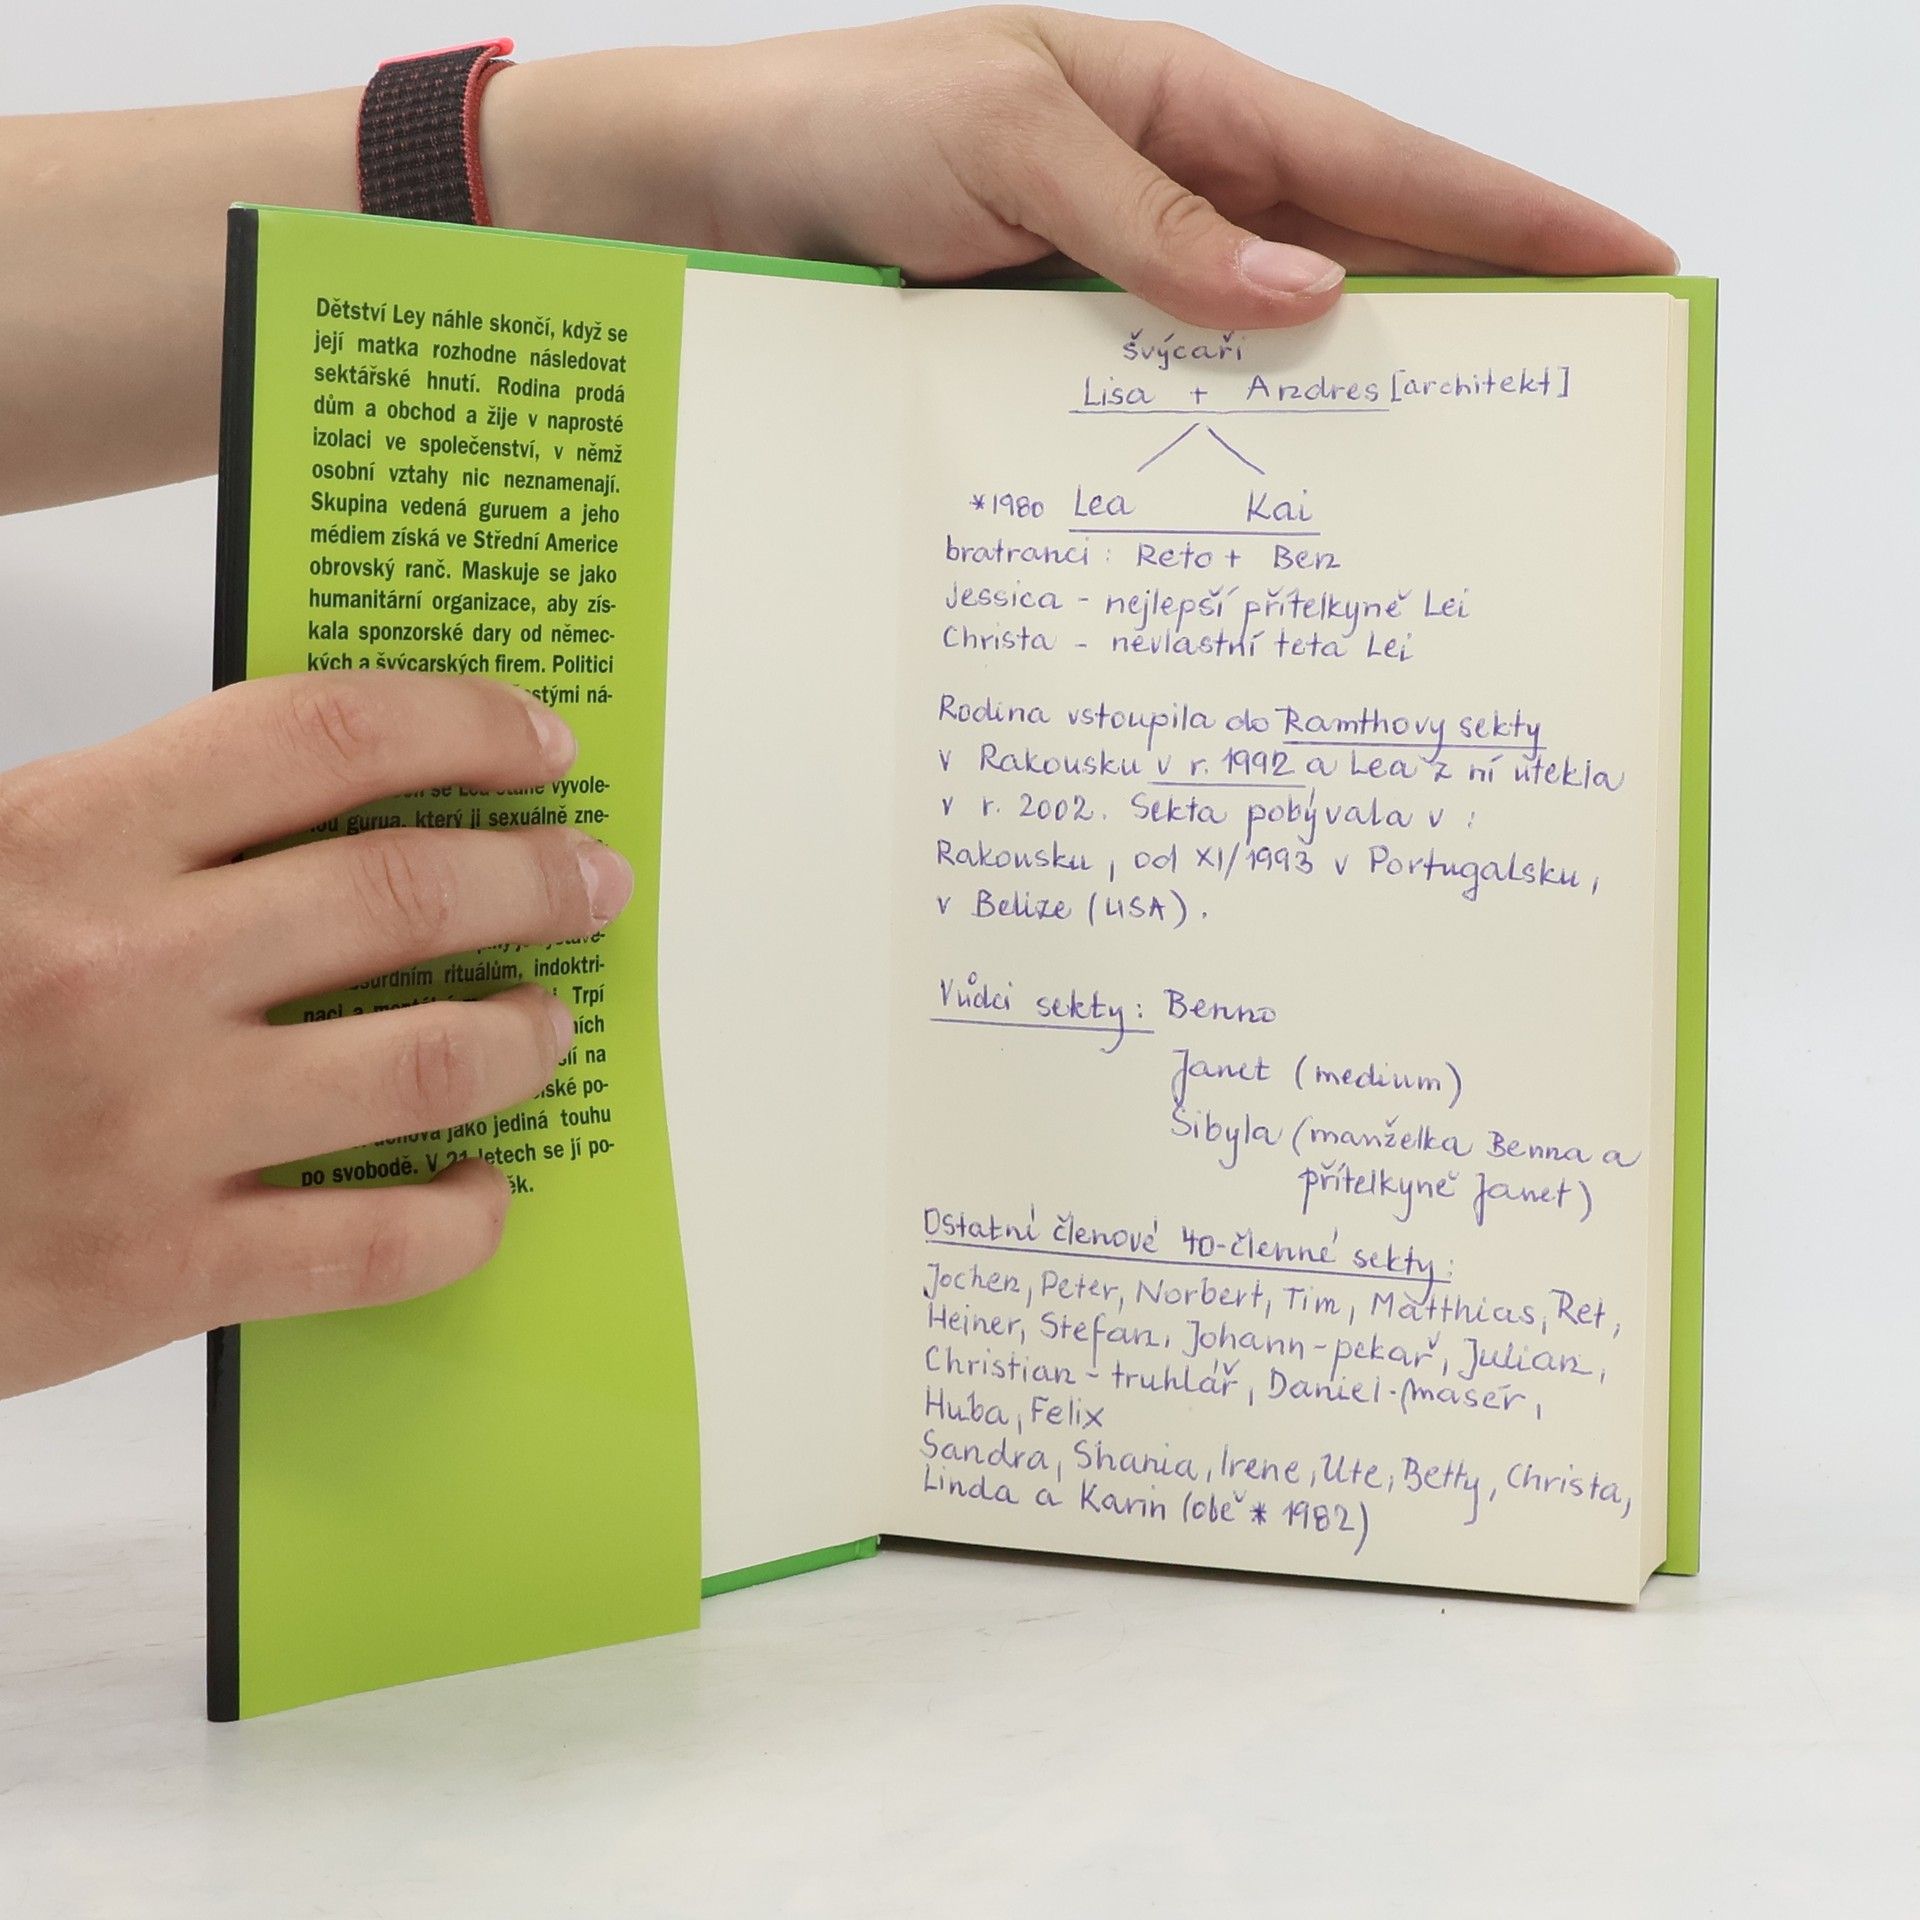 Dětství Ley náhle skončí, když se
její matka rozhodne následovat
sektářské hnutí. Rodina prodá
dům a obchod a žije v naprosté
izolaci ve společenství, v němž
osobní vztahy nic neznamenají.
Skupina vedená guruem a jeho
médiem získá ve Střední Americe
obrovský ranč. Maskuje se jako
humanitární organizace, aby zís-
kala sponzorské dary od němec-
kých a švýcarských firem. Politici
ná-
se
vyvole-
gurua, který ji sexuálně zne-
rituálům, indoktri-
naci a Trpí
na
po-
jako jediná touhu
po svobodě. V 21 letech se jí po-
švýcaři
Lisa + Andres [architekt]
*1980 Lea Kai
bratranci: Reto + Ben
Jessica - nejlepší přítelkyně Lei
Christa - nevlastní teta Lei
Rodina vstoupila do Ramthovy sekty
v Rakousku v r. 1992 a Lea z ní utekla
v r. 2002. Sekta pobývala v:
Rakousku, od XI/1993 v Portugalsku,
v Belize (USA).
Vůdci sekty: Benno
Janet (medium)
Sibyla (manželka Benna a
přítelkyně Janet)
Ostatní členové 40-členné sekty:
Jochen, Peter, Norbert, Tim, Matthias, Ret,
Heiner, Stefan, Johann-pekař, Julian,
Christian - truhlář, Daniel-masér,
Huba, Felix
Sandra, Shania, Irene, Ute, Betty, Christa,
Linda a Karin (obě * 1982)